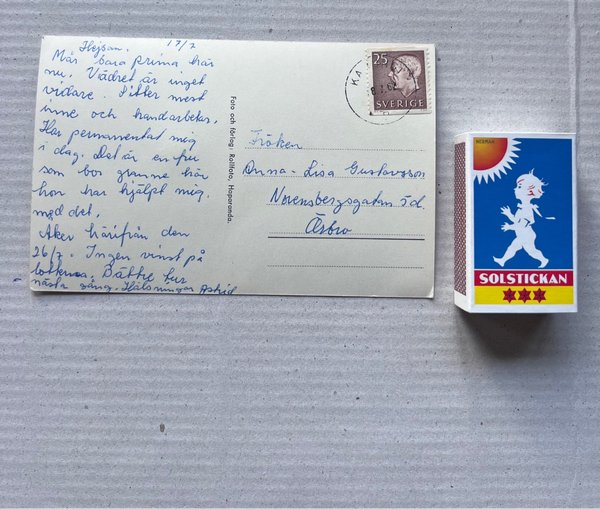 Hejsan. 17/7
Mår bara prima här
nu. Vädret är inget
vidare. Sitter mest
inne och handarbetar.
Har permanentat mig
i dag. Det är en fru
som bor granne här
hon har hjälpt mig
med det.
Åker härifrån den
26/7. Ingen vinst på
lotterna. Bättre tur
nästa gång. Hälsningar Astrid
Foto och förlag: Rallfoto, Haparanda.
25
SVERIGE
KA
Fröken
Anna-Lisa Gustavsson
Norensbergsgatan 5d
Örebro
NERMAN
SOLSTICKAN